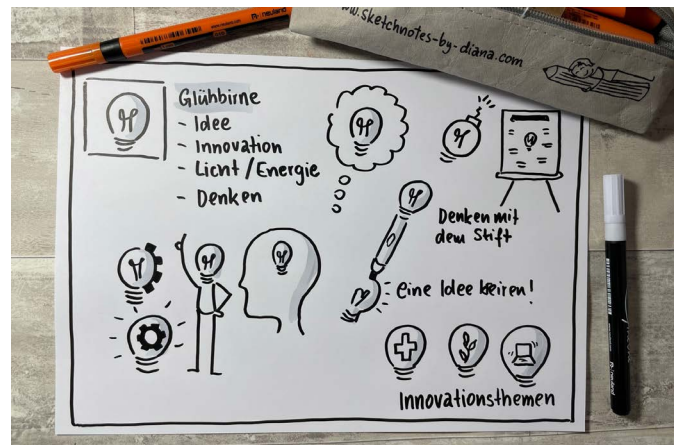 Neuland
www.sketchnotes-by-diana.com
Glühbirne
- Idee
- Innovation
- Licht/Energie
- Denken
Denken mit
dem Stift
eine Idee
Innovationsthemen